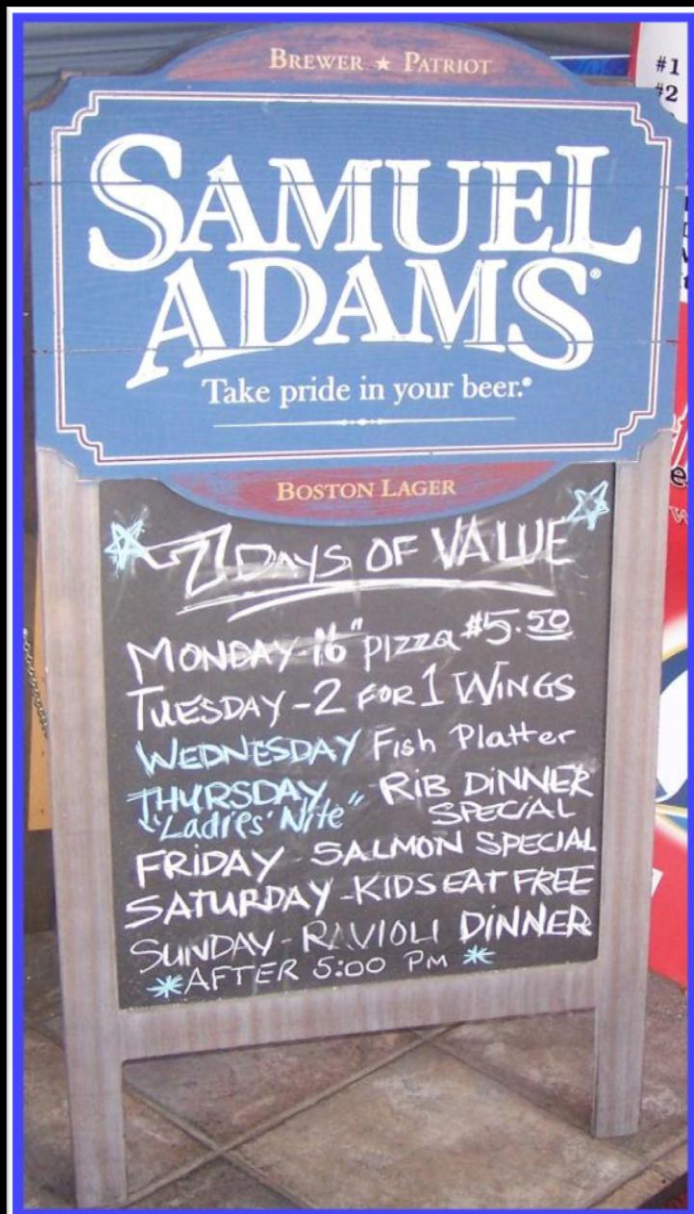 BREWER ★ PATRIOT
#1
#2
SAMUEL
ADAMS®
Take pride in your beer.®
BOSTON LAGER
7 DAYS OF VALUE
MONDAY-16" PIZZA $5.50
TUESDAY-2 FOR 1 WINGS
WEDNESDAY Fish Platter
THURSDAY RIB DINNER
"Ladies' Nite" SPECIAL
FRIDAY SALMON SPECIAL
SATURDAY-KIDS EAT FREE
SUNDAY-RAVIOLI DINNER
*AFTER 5:00 PM *